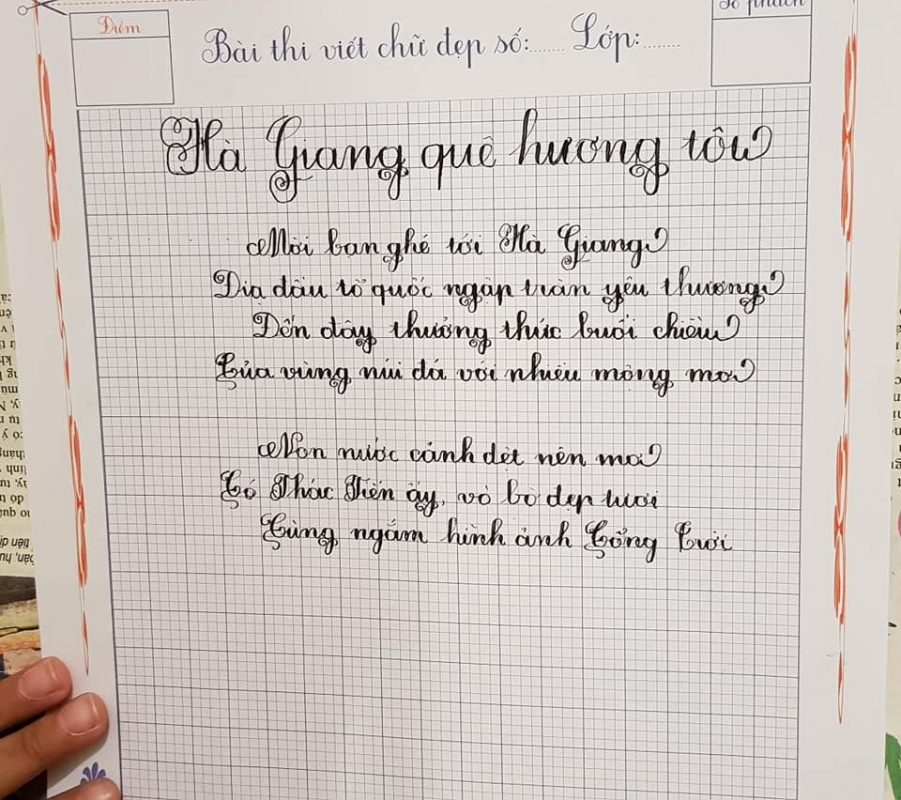 Điểm
Số phách
Bài thi viết chữ đẹp số:....... Lớp:.......
Hà Giang quê hương tôi
Mời bạn ghé tới Hà Giang
Địa đầu tổ quốc ngập tràn yêu thương
Đến đây thưởng thức buổi chiều
Của vùng núi đá với nhiều mộng mơ
Non nước cảnh dệt nên mơ
Có Thác Tiên ấy, vò bò đẹp tươi
Cùng ngắm hình ảnh Cổng Trời